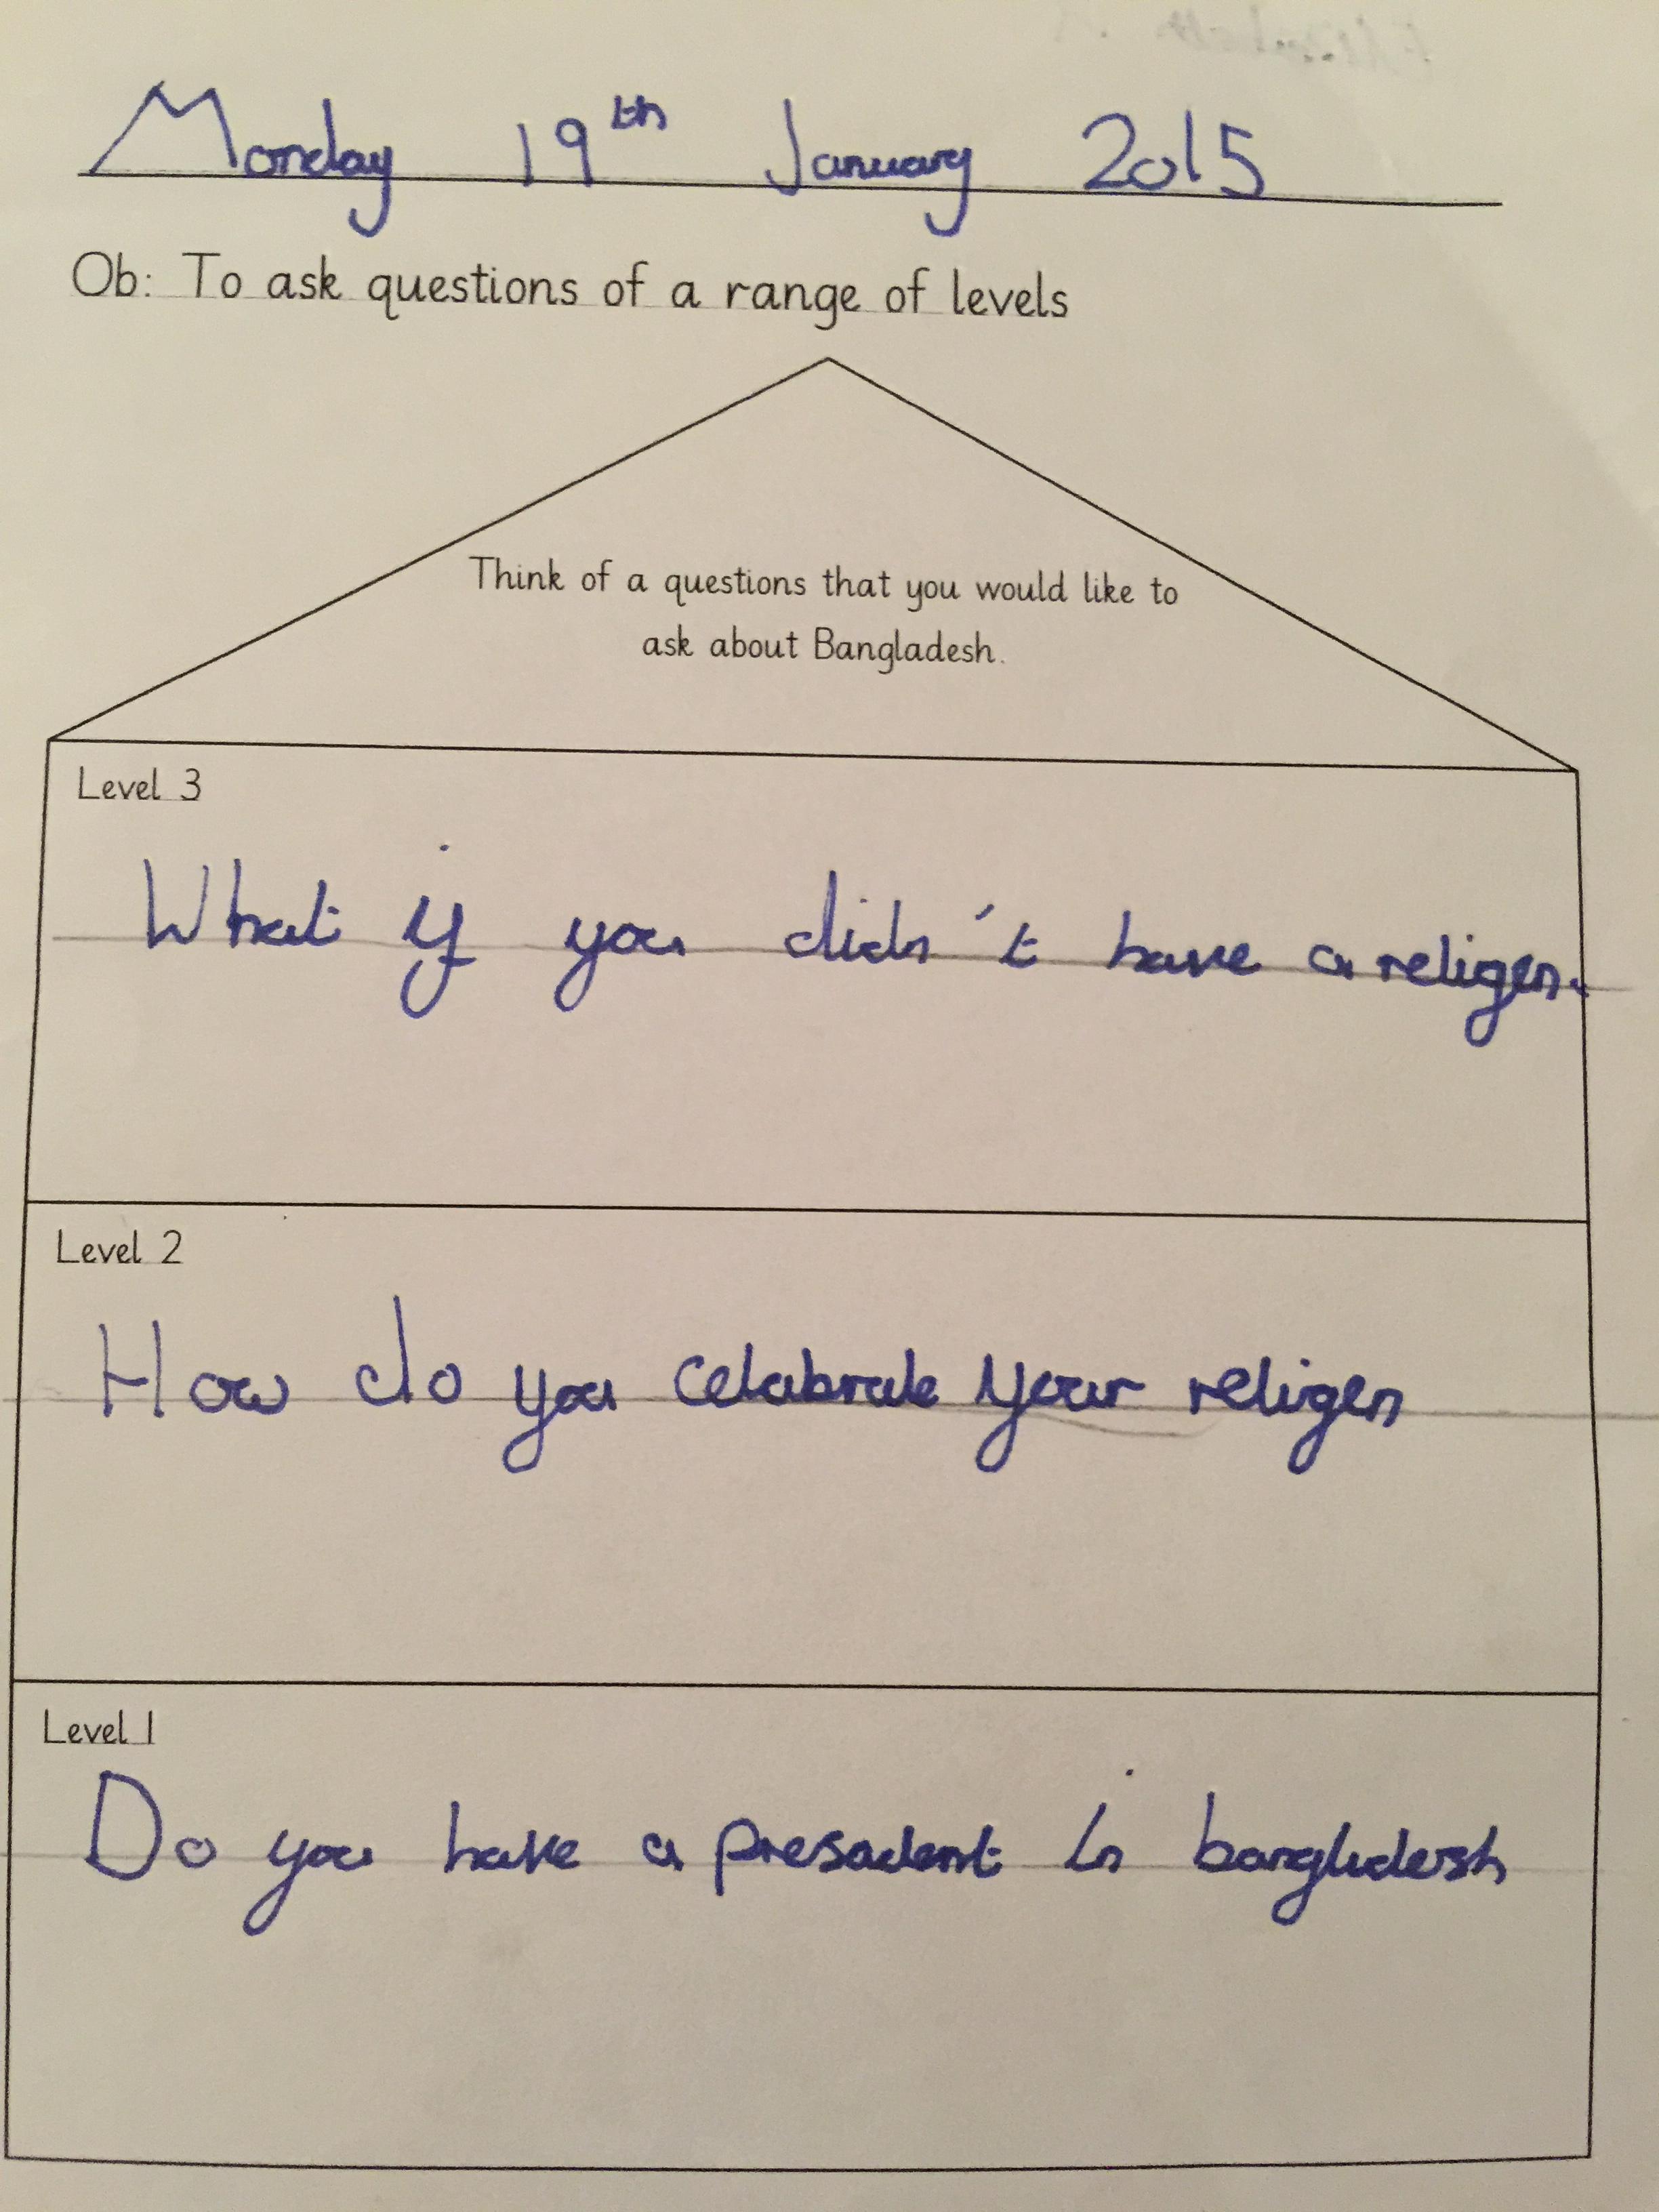 Monday 19th January 2015
Ob: To ask questions of a range of levels
Think of a questions that you would like to
ask about Bangladesh.
Level 3
What if you didn't have a religen.
Level 2
How do you celabrate your religen
Level 1
Do you have a presadent in bangladesh